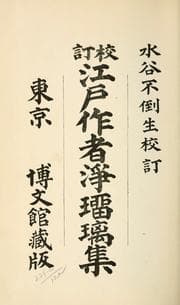 水谷不倒生校訂
校訂
江戸作者淨瑠璃集
東京
博文館藏版